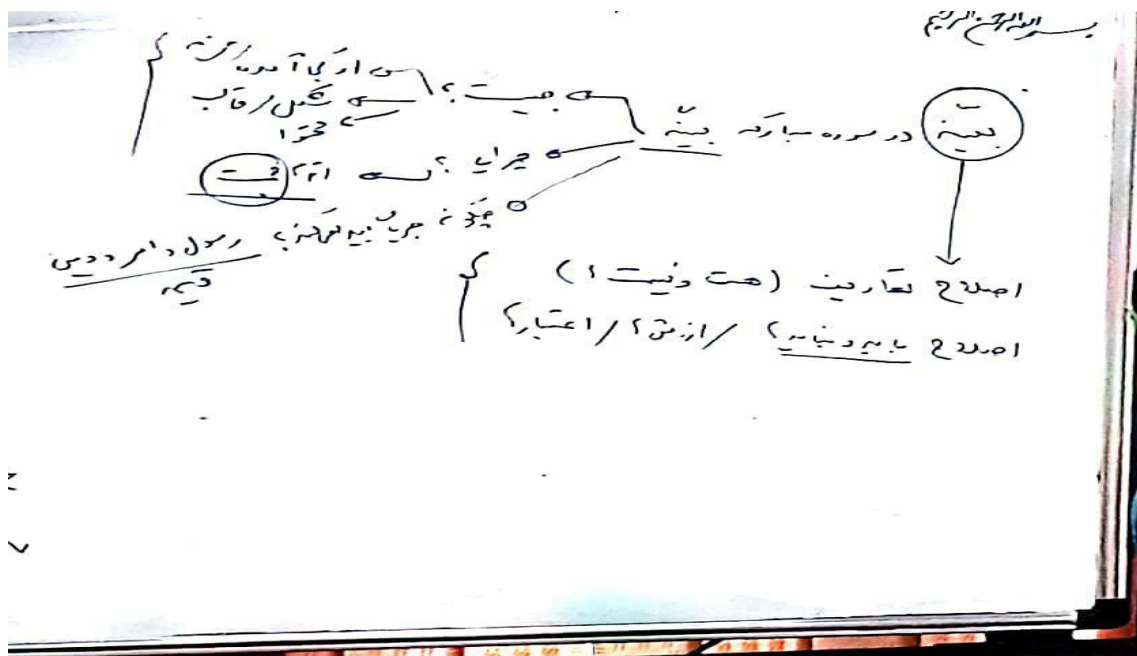 بسم الله الرحمن الرحیم
بیّنه در سوره مبارکه بیّنه
چیست؟ از کجا آمده
شکل / قالب
محتوا
چرایی؟ اتمام حجت
چگونه جریان پیدا می‌کند؟ رسول و امر و دین
قیمه
اصلاح تعاریف (هست و نیست ؟)
اصلاح باید و نباید؟ / ارزش؟ / اعتبار؟